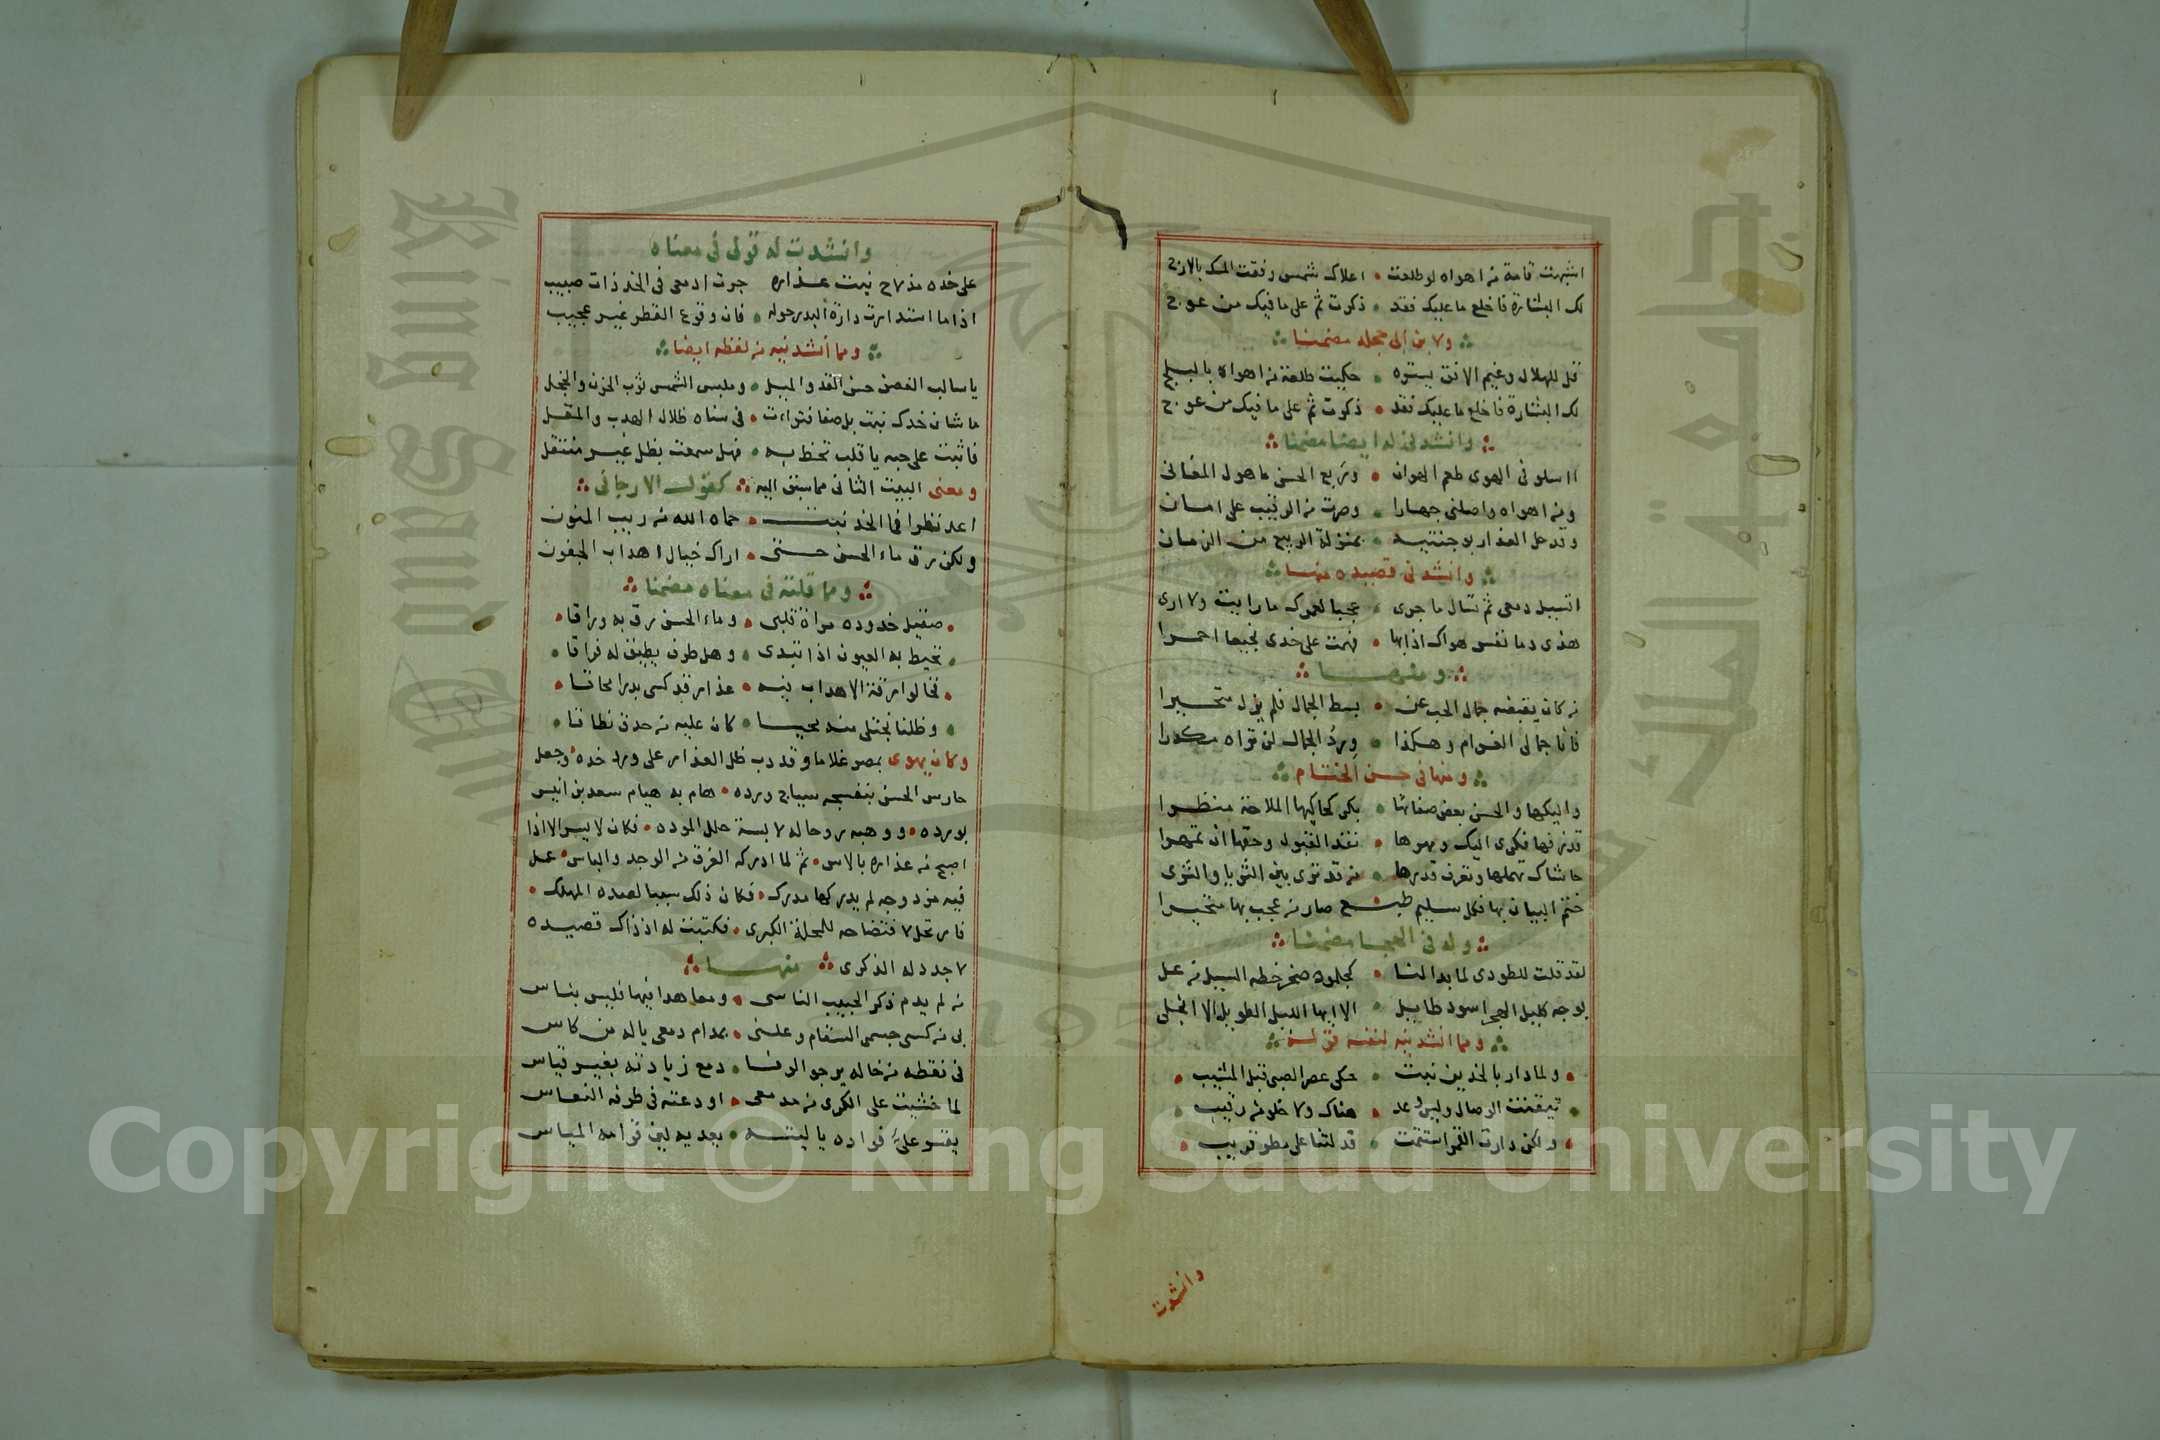 اشبهت قامة من اهواه لو طلعت • اعلاك شمس رفقت المسك بالارج
لك البشارة فاخلع ما عليك فقد • ذكرت ثم على ما فيك من عوج
ولابن ابي حجله مضمنا
قل للهلال وغيم الافق يستره • حكيت طلعة من اهواه بالبلج
لك البشارة فاخلع ما عليك فقد • ذكرت ثم على ما فيك من عوج
وانشدني له ايضا مضمنا
ااسلو في الهوى طعم الهوان • وربع الحسن ماهول المغاني
ومن اهواه واصلني جهارا • وصرت من الرقيب على امان
وقد حل العذار بوجنتيه • بمنزلة الربيع من الزمان
وانشدني قصيده منها
اتسيل دمعي ثم تسال ما جرى • عجبا لعمرك ما رايت ولا ارى
هذي دما نفس هواك اذابها • فهمت على خدي نجيعا احمرا
ومنها
من كان يقبضه جمال الحب عن • بسط الجمال فلم يزل متحيرا
فانا جمالي الغرام وهكذا • ورد الجمال لن تراه مكدرا
ومنها في حسن الختام
واليكها والحسن بعض صفاتها • بكر كحاكيها الملاحة منظرا
قد زفها فكري اليك ومهرها • نقد القبول وحقها ان تمهرا
حاشاك تهملها وتعرف قدرها • من قد ترى بين الثريا والثرى
ختم البيان بها فكل سليم طبع صار من عجب بها متحيرا
وله في الهجا مضمنا
لقد قلت للطودي لما بدا لنا • كجلمود صخر حطه السيل من عل
بوجه كليل الهجر اسود طايل • الا ايها الليل الطويل الا انجلي
ومما انشدنيه لنفسه قوله
ولما دار بالخدين نبت • حكى عصر الصبى قبل المشيب
تيقنت الوصال وليس وعد • هناك ولا خلو من رقيب
ولكن دارت القمر استتمت • قد لتنا على مطر قريب
وانشدت
وانشدت له قولي في معناه
على خده مذ لاح نبت عذاره جرت ادمعي في الخد ذات صبيب
اذا ما استدارت دارة البدر حوله • فان وقوع القطر غير عجيب
ومما انشدنيه من لفظه ايضا
يا سالب الغصن حسن القد والميل • وملبس الشمس ثوب الحزن والخجل
ما شان خدك نبت بل صفا فتراءت • في سناه ظلال الهدب والمقل
فاثبت على حبه يا قلب تحظ به • فهل سمعت بظل غير منتقل
ومعنى البيت الثاني مما سبق اليه كقول الارجاني
اعد نظرا فما في الخد نبت • حماه الله من ريب المنون
ولكن رق ماء الحسن حتى • اراك خيال اهداب الجفون
ومما قلته في معناه مضمنا
صقيل خدوده مراة قلبي • وماء الحسن رق به وراقا
تحيط به العيون اذا تبدى • وهل طرف يطيق له فراقا
فخالوا رقة الاهداب فيه • عذار قد كسى بدرا محاقا
وظلنا نجتلي منه محيا • كان عليه من حدق نطاقا
وكان يهوى بمصر غلاما وقد دب ظل العذار على ورد خده وجعل
حارس الحسن بنفسجه سياج ورده • هام به هيام سعد بن انيس
بورده • ووهبه روحا له لابسة حلل الموده • فكان لا يسر الا اذا
اصبح من عذاره بالاس • ثم لما ادركه الغرق من الوجد والباس • عمل
فيه مزدوجه لم يدركها مدرك • فكان ذلك سببا لصده المهلك •
فارتحل لافتضاحه للمحلة الكبرى • فكتبت له اذ ذاك قصيده
لاجدد له الذكرى منها
من لم يدم ذكر الحبيب الناسي • ومعاهدا فيها فليس بناس
لي من كسى جسمي السقام وعلني • بمدام دمعي ياله من كاس
في نقطه من خاله يرجو الوفا • دمع زيادته بغير قياس
لما خشيت على الكرى من مدمعي • اودعته في طرفه النعاس
يقسو علي فؤاده يا ليته • يعديه لين قوامه المياس